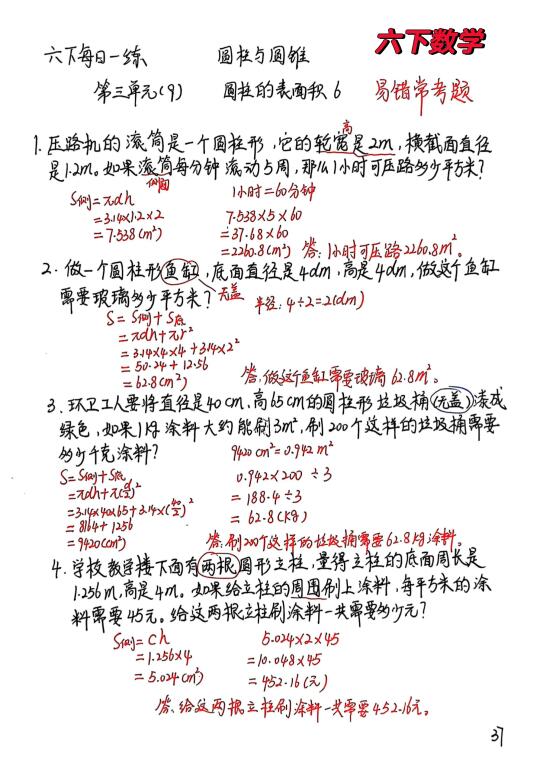 六下数学
六下每日一练 圆柱与圆锥
第三单元(9) 圆柱的表面积6 易错常考题
1. 压路机的滚筒是一个圆柱形,它的轮宽是2m,横截面直径
高
是1.2m。如果滚筒每分钟滚动5周,那么1小时可压路多少平方米?
侧面
S侧=πdh 1小时=60分钟
=3.14×1.2×2 7.538×5×60
=7.538(m²) =37.68×60
=2260.8(m²) 答:1小时可压路2260.8m²。
2. 做一个圆柱形鱼缸,底面直径是4dm,高是4dm,做这个鱼缸
需要玻璃多少平方米? 无盖 半径:4÷2=2(dm)
S=S侧+S底
=πdh+πr²
=3.14×4×4+3.14×2²
=50.24+12.56
=62.8(m²) 答:做这个鱼缸需要玻璃62.8m²。
3. 环卫工人要将直径是40cm,高65cm的圆柱形垃圾桶(无盖)漆成
绿色,如果1kg涂料大约能刷3m²,刷200个这样的垃圾桶需要
多少千克涂料? 9420cm²=0.942m²
S=S侧+S底 0.942×200÷3
=πdh+π(d/2)² =188.4÷3
=3.14×40×65+3.14×(40/2)² =62.8(kg)
=8164+1256
=9420(cm²) 答:刷200个这样的垃圾桶需要62.8kg涂料。
4. 学校教学楼下面有两根圆形立柱,量得立柱的底面周长是
1.256m,高是4m。如果给立柱的周围刷上涂料,每平方米的涂
料需要45元。给这两根立柱刷涂料一共需要多少元?
S侧=Ch 5.024×2×45
=1.256×4 =10.048×45
=5.024(m²) =452.16(元)
答:给这两根立柱刷涂料一共需要452.16元。
37